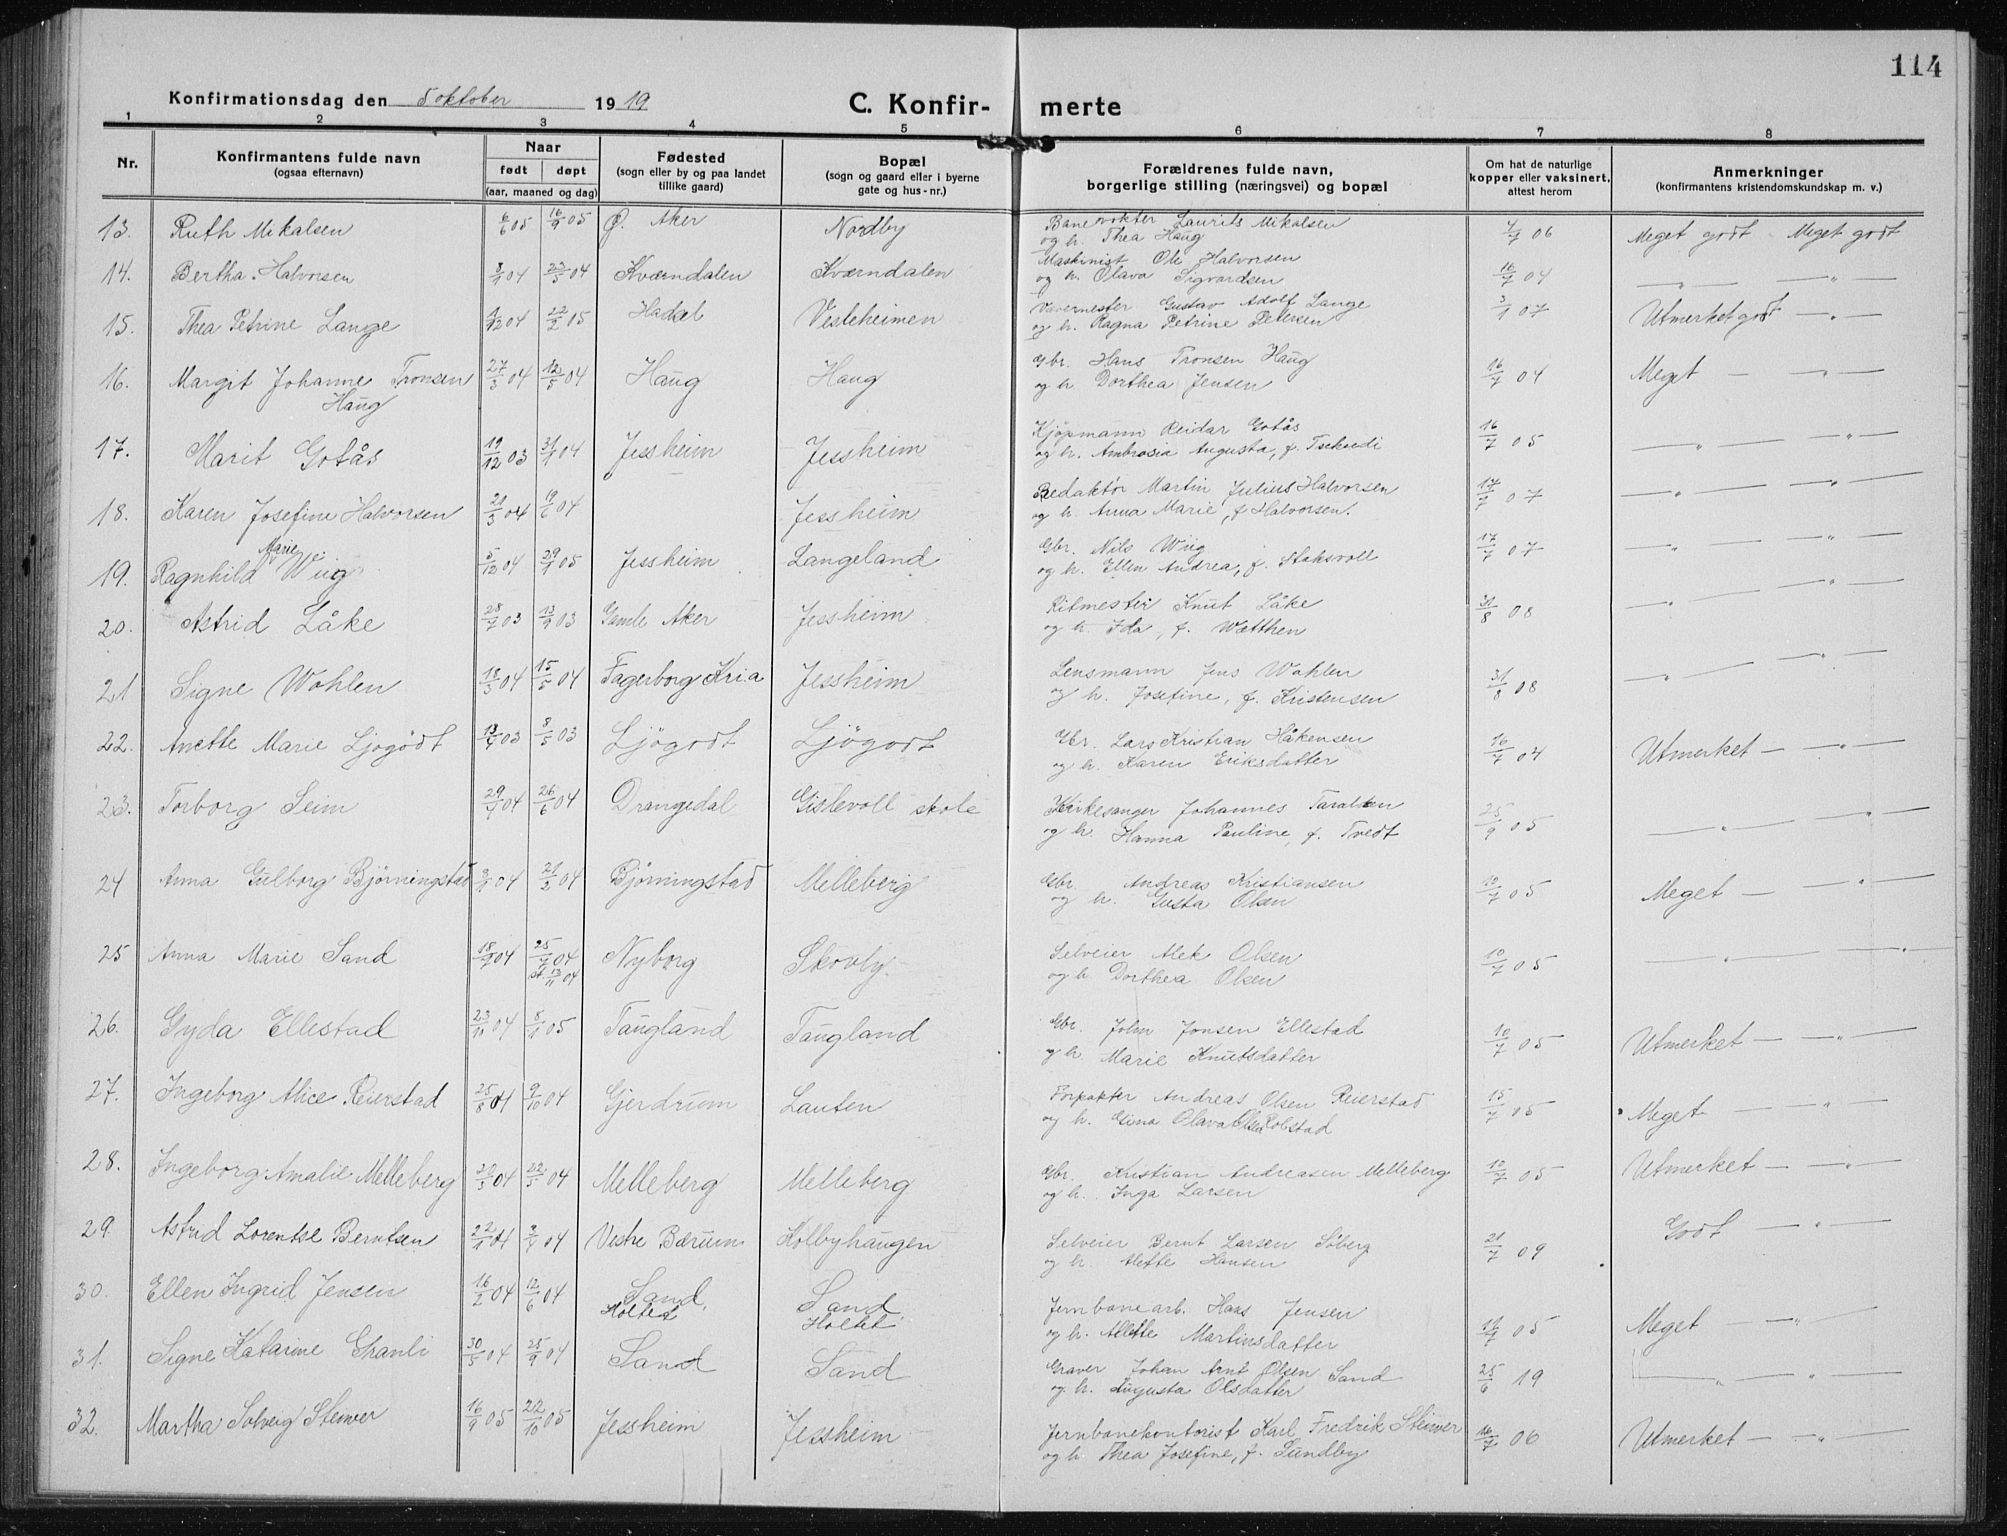 114
Konfirmationsdag den 5 oktober 1919 C. Konfir- merte
1 2 3 4 5 6 7 8
Nr. Konfirmantens fulde navn (ogsaa efternavn) Naar født døpt (aar, maaned og dag) Fødested (sogn eller by og paa landet tillike gaard) Bopæl (sogn og gaard eller i byerne gate og hus-nr.) Forældrenes fulde navn, borgerlige stilling (næringsvei) og bopæl Om hat de naturlige kopper eller vaksinert, attest herom Anmerkninger (konfirmantens kristendomskundskap m. v.)
13. Ruth Mikalsen 6/6 05 16/9 05 Ø. Aker Nordby Banevokter Laurits Mikalsen 4/7 06 Meget godt - Meget godt
og h. Thea Haug
14. Bertha Halvorsen 04 23/5 04 Kværndalen Kværndalen Maskinist Ole Halvorsen 16/7 04 — „ — — „ —
og h. Olava Sigvardsen
15. Thea Petrine Lange 1/12 04 22/2 05 Hackel Vesteheimen Gustav Adolf Lange 3/1 07 Utmerket godt — „ —
og h. Ragna Petrine Petersen
16. Margit Johanne Tronsen 27/3 04 12/5 04 Haug Haug Gbr. Hans Tronsen Haug 16/7 04 Meget — — „ —
Haug og h. Dorthea Jensen
17. Marit Gotås 19/12 03 31/1 04 Jessheim Jessheim Kjøpmann Reidar Gotås 16/7 05 — „ — — „ —
og h. Ambrosia Augusta, f. Tschudi
18. Karen Josefine Halvorsen 21/3 04 19/6 04 Jessheim Redaktør Martin Julius Halvorsen 17/7 07 — „ — — „ —
og h. Anna Marie, f Halvorsen.
19. Ragnhild Marie Wiig 5/12 04 29/1 05 Jessheim Langeland Gbr. Nils Wiig 17/7 07 — „ — — „ —
og h. Ellen Andrea, f. Stoksvoll
20. Astrid Låke 28/7 03 13/9 03 Gamle Aker Jessheim Ritmester Knut Låke 31/8 08 — „ — — „ —
og h. Ida, f. Wætthen
21 Signe Wohlen 18/3 04 15/5 04 Fagerborg Kr.i.a Jessheim Lensmann Jens Wohlen 31/8 08 — „ — — „ —
og h. Josefine, f. Kristensen
22. Anette Marie Ljøgodt 03 8/5 03 Ljøgodt Ljøgodt Gbr. Lars Kristian Håkensen 16/7 04 Utmerket — — „ —
og h. Karen Eriksdatter
23. Torborg Seim 29/4 04 26/6 04 Drangedal Gislevoll skole Kirkesanger Johannes Taraldsen 25/9 05 — „ — — „ —
og h. Hanna Pauline, f. Tvedt
24 Anna Gulborg Bjørningstad 04 21/2 04 Bjørningstad Melleberg Gbr. Andreas Kristiansen 10/7 05 Meget — — „ —
og h. Gusta Olsen
25 Anna Marie Sand 18/7 04 25/7 04 Nyborg Skovly Selveier Alek Olsen 10/7 05 — „ — — „ —
st. 13/11 04 og h. Dorthea Olsen
26. Gyda Ellestad 23/11 04 8/1 05 Taugland Taugland Gbr. John Jonsen Ellestad 10/7 05 Utmerket — — „ —
og h. Marie Knutsdatter
27. Ingeborg Alice Reierstad 25/8 04 9/10 04 Gjerdrum Lauten Forpakter Andreas Olsen Reierstad 15/7 05 Meget — — „ —
og h. Gina Olava Olsen Robstad
28. Ingeborg Amalie Melleberg 04 22/5 04 Melleberg Melleberg Gbr. Kristian Andreasen Melleberg 10/7 05 Utmerket — — „ —
og h. Inga Larsen
29. Astrid Lorentse Berntsen 22/1 04 3/4 04 Vestre Bærum Kolbyhaugen Selveier Bernt Larsen Søberg 21/7 09 Godt — „ —
og h. Alette Hansen
30. Ellen Ingrid Jensen 16/2 04 12/6 04 Sand, Sand Jernbanearb. Hans Jensen 05 Meget — — „ —
Holtet Holtet og h. Alette Martinsdatter
31. Signe Katarine Granli 30/5 04 25/9 04 Sand Sand Graver Johan Arnt Olsen Sand 25/6 19 — „ — — „ —
og h. Augusta Olsdatter
32. Martha Solveig Stenver 16/9 05 22/10 05 Jessheim Jessheim Jernbanekontorist Karl Fredrik Stenver 16/7 06 Utmerket — — „ —
og h. Thea Josefine, f. Lundby